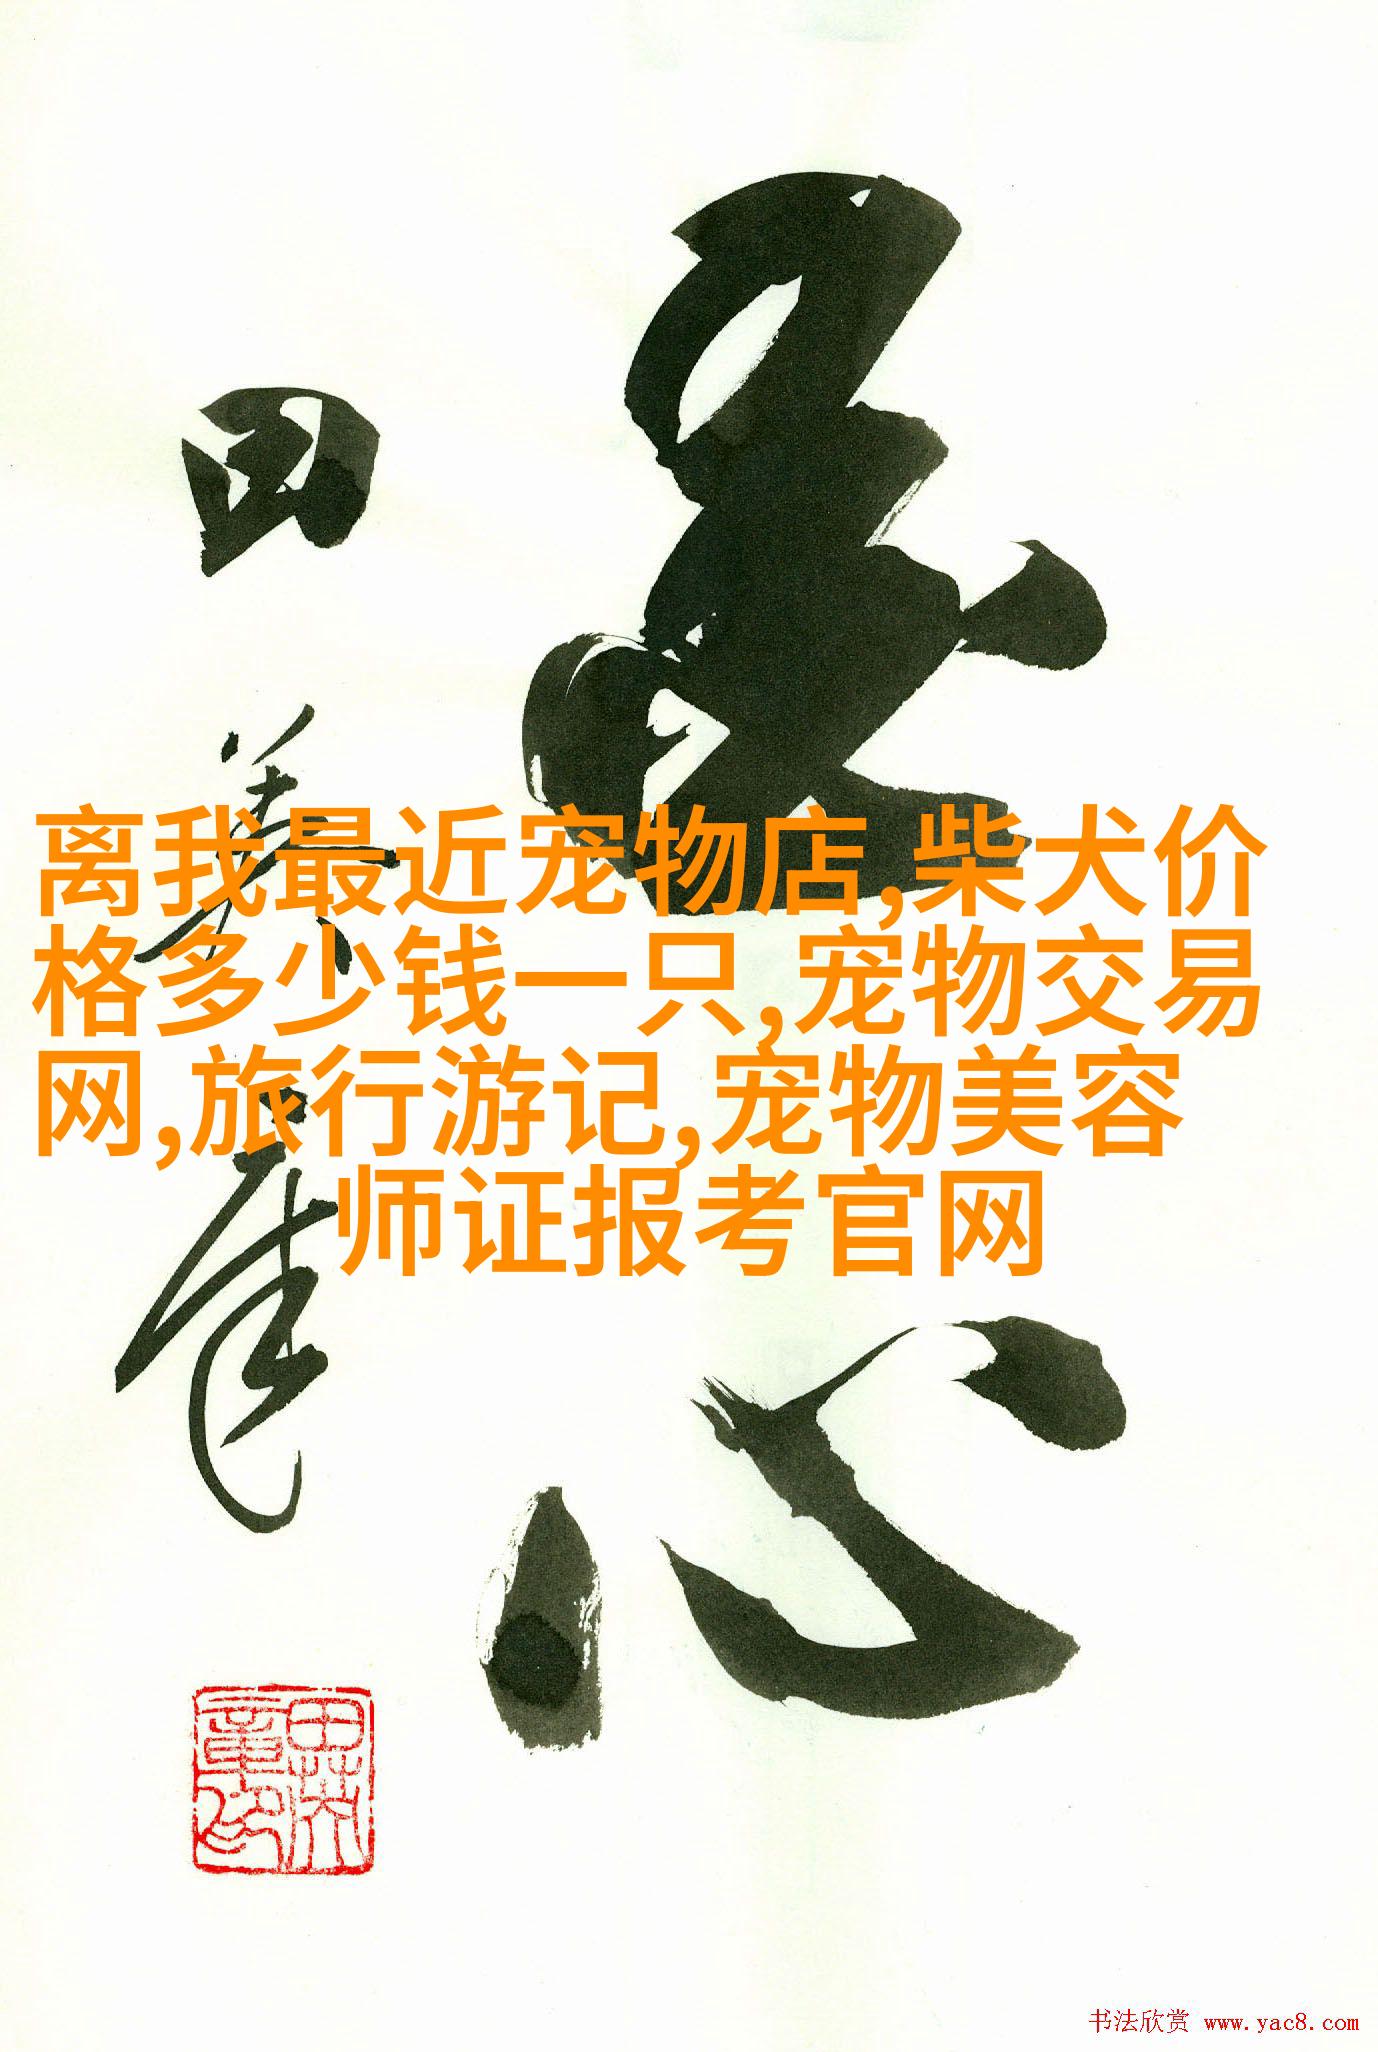 离我最近宠物店,柴犬价
格多少钱一只,宠物交易
网,旅行游记,宠物美容
师证报考官网
田
英
章
心
书法欣赏 www.yac8.com